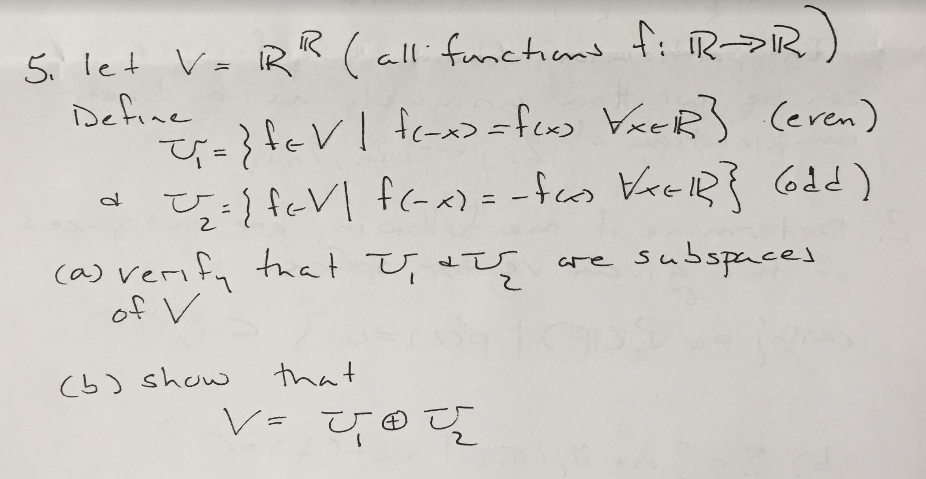 5. let V = ℝ^ℝ (all functions f: ℝ→ℝ)
Define
U₁ = {f∈V | f(-x) = f(x) ∀x∈ℝ} (even)
& U₂ = {f∈V | f(-x) = -f(x) ∀x∈ℝ} (odd)
(a) verify that U₁ & U₂ are subspaces
of V
(b) show that
V = U₁ ⊕ U₂